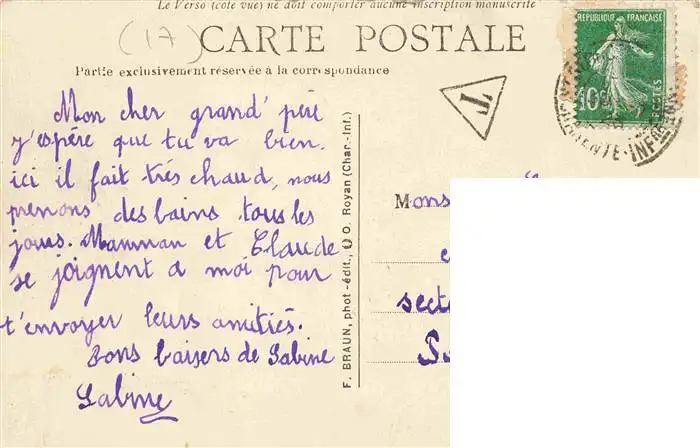 Le Verso (côté vue) ne doit comporter aucune inscription manuscrite
(17)
CARTE POSTALE
Partie exclusivement réservée à la correspondance
RÉPUBLIQUE FRANÇAISE
10c
POSTES
T
CHARENTE-INFRE
Mon cher grand' père
j'espére que tu va bien.
ici il fait trés chaud, nous
prenons des bains tous les
jours. Manman et Claude
se joignent a moi pour
t'envoyer leurs amitiés.
Bons baisers de Sabine
Sabine
F. BRAUN, phot-édit., Royan (Char.-Inf.)
Mons
sect